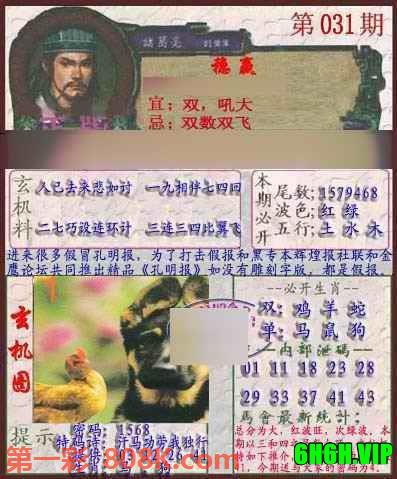 第031期
諸葛亮
稳赢
宜：双，吼大
忌：双数双飞
玄机料
久已去来悲如讨 一九相伴七四回
二七巧设连环计 三连三四比翼飞
本期必开
尾数:1579468
波色:红 绿
五行:土 水 木
进来很多假冒孔明报，为了打击假报和黑专本辉煌报社联和金
鹰论坛共同推出精品《孔明报》如没有雕刻字版，都是假报。
玄机图
必开生肖
双:鸡 羊 蛇
单:马 鼠 狗
内部泄码
01 11 18 23 28
29 33 37 41 43
馬會最新統計:
总分为大，红波旺，次绿波，本
提示
密码: 1568
特码诗: 汗马功劳我独行
第一彩:808K.com
6HGH.VIP